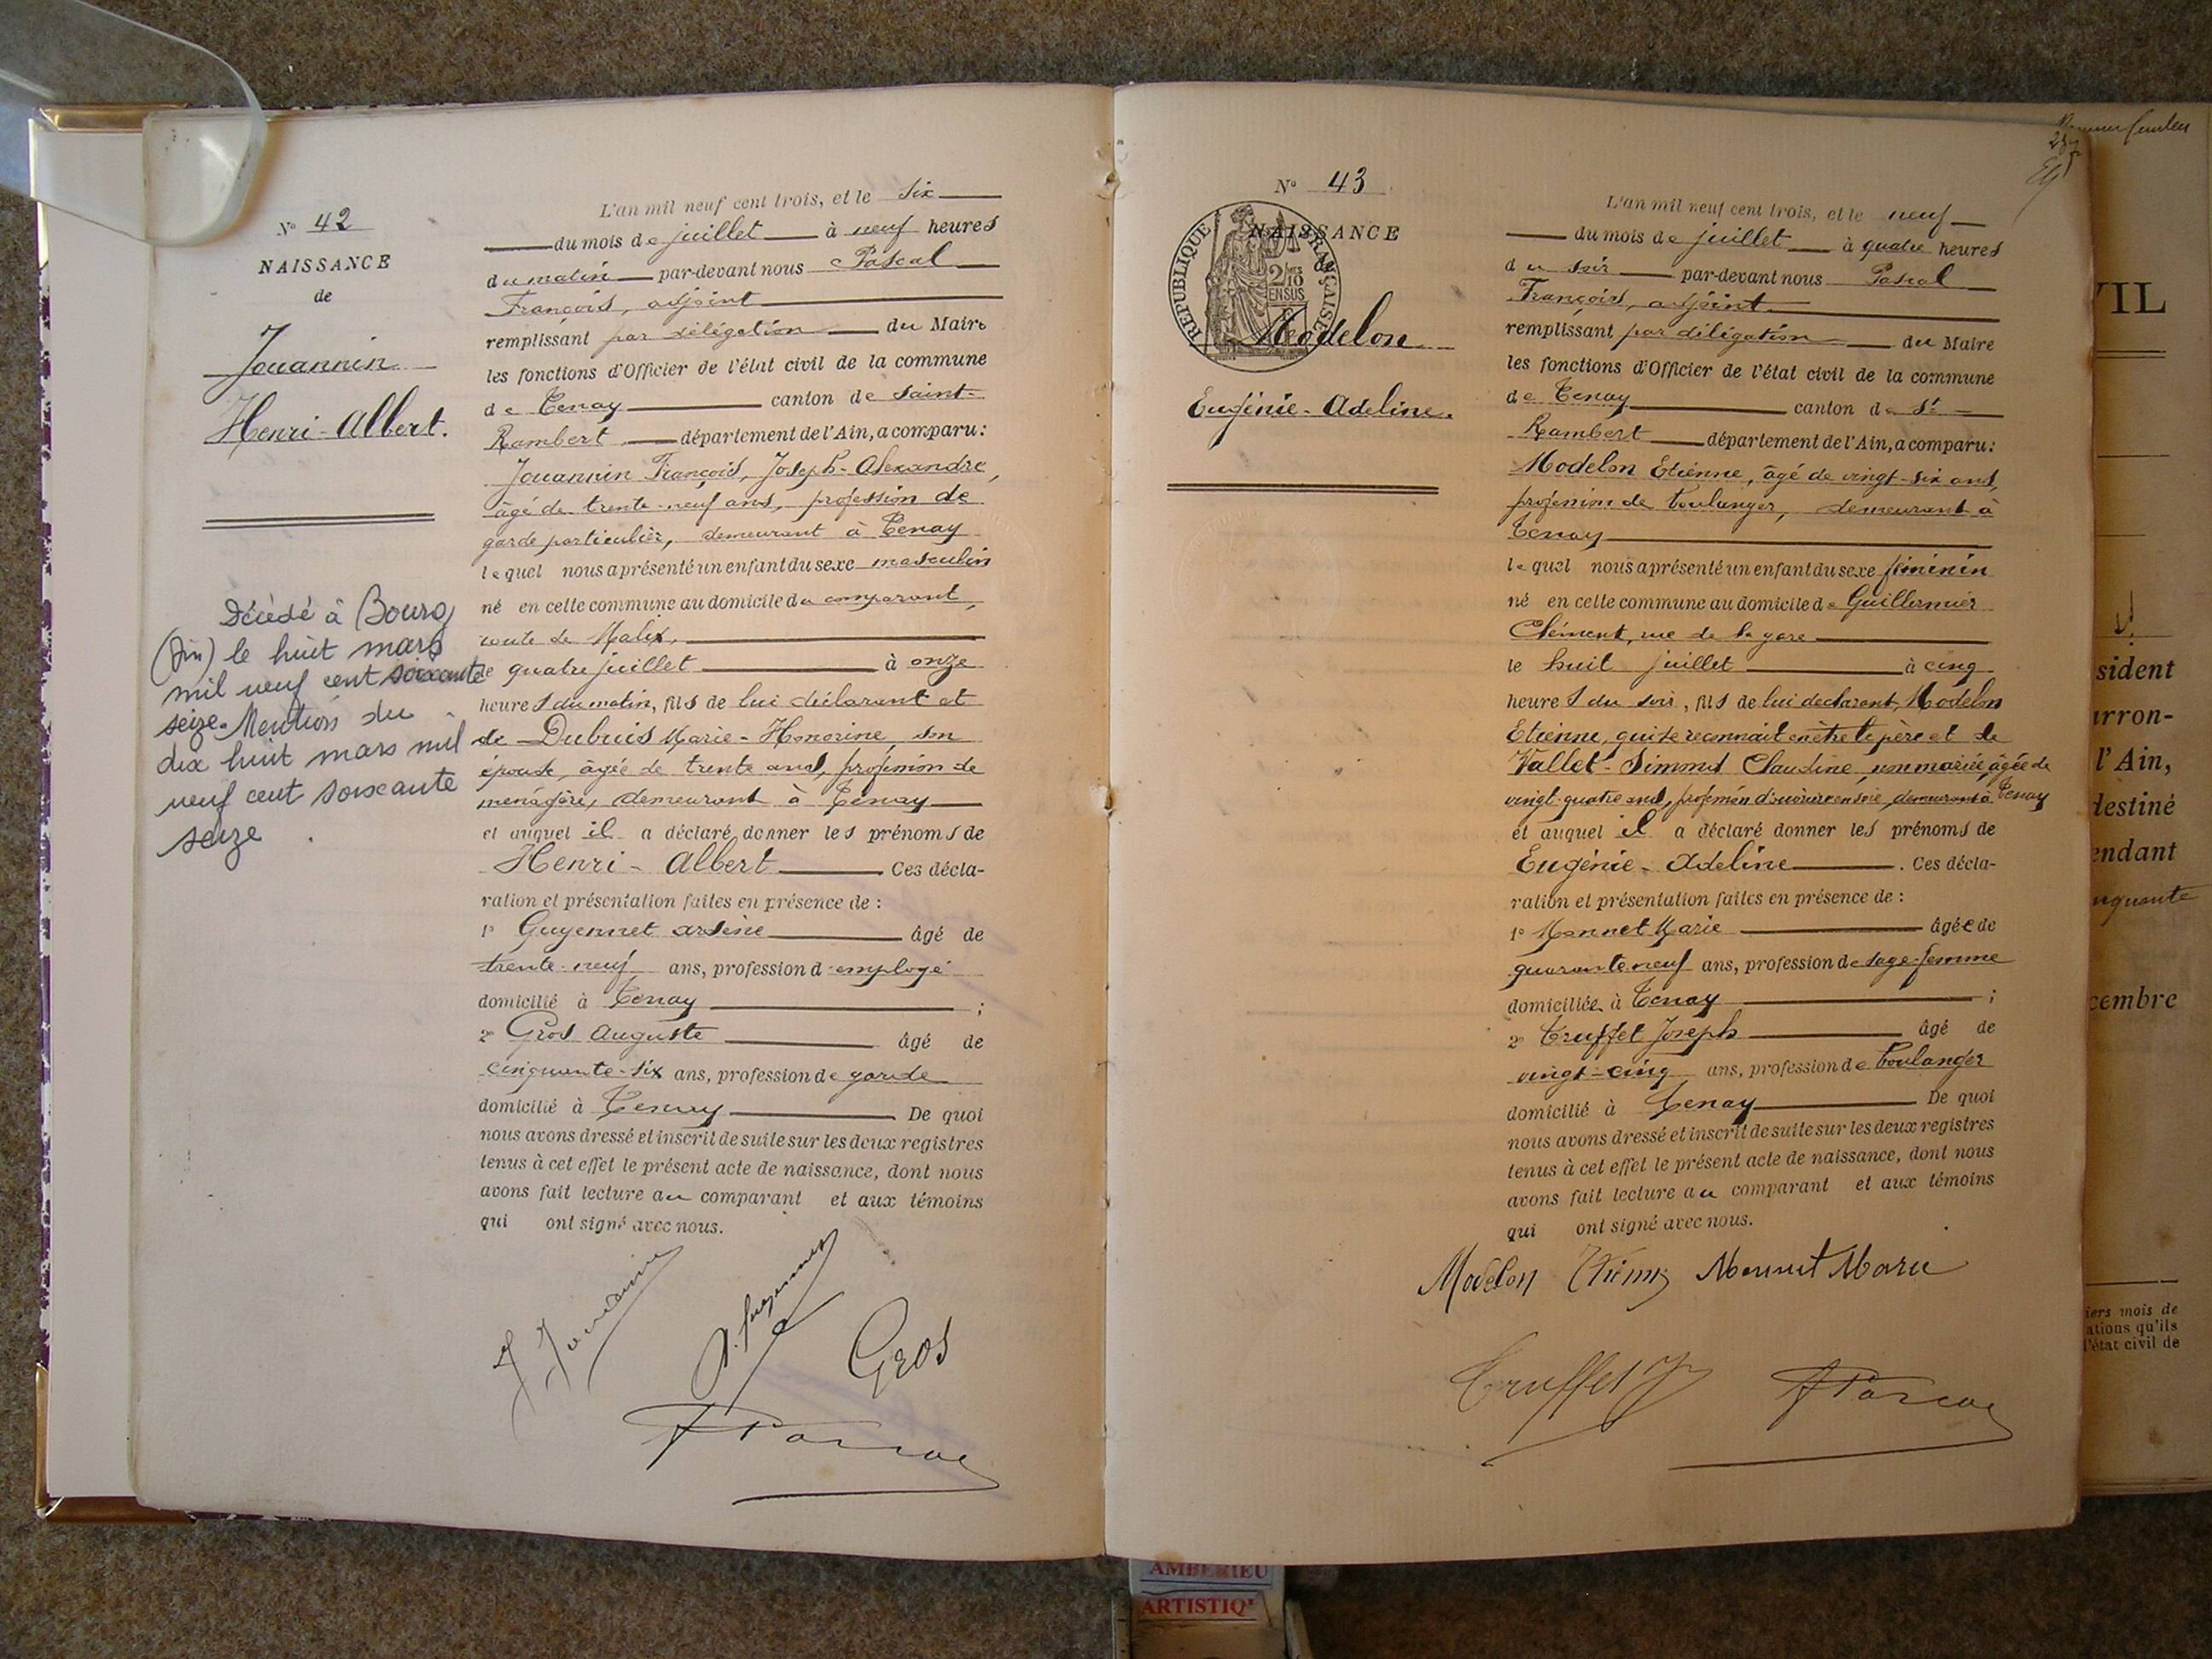 N° 42
NAISSANCE
de
Jouannin
Henri-Albert.
Décédé à Bourg
(Ain) le huit mars
mil neuf cent soixante
seize. Mention du
dix huit mars mil
neuf cent soixante
seize
L'an mil neuf cent trois, et le six
du mois de juillet à neuf heures
du matin par-devant nous Pascal
François, adjoint
remplissant par délégation du Maire
les fonctions d'Officier de l'état civil de la commune
de Tenay canton de Saint-
Rambert département de l'Ain, a comparu:
Jouannin François, Joseph-Alexandre,
âgé de trente-neuf ans, profession de
garde particulier, demeurant à Tenay
lequel nous a présenté un enfant du sexe masculin
né en cette commune au domicile du comparant,
route de Malix,
le quatre juillet à onze
heures du matin, fils de lui déclarant et
de Dubuis Marie-Honorine, son
épouse, âgée de trente ans, profession de
ménagère, demeurant à Tenay
et auquel il a déclaré donner les prénoms de
Henri-Albert Ces décla-
ration et présentation faites en présence de :
1° Guyennet Arsène âgé de
trente-neuf ans, profession d'employé
domicilié à Tenay ;
2° Gros Auguste âgé de
cinquante-six ans, profession de garde
domicilié à Tenay De quoi
nous avons dressé et inscrit de suite sur les deux registres
tenus à cet effet le présent acte de naissance, dont nous
avons fait lecture au comparant et aux témoins
qui ont signé avec nous.
J Jouannin
A. Guyennet
Gros
F Pascal
N° 43
NAISSANCE
de
RÉPUBLIQUE FRANÇAISE
2/10
EN SUS
Modelon
Eugénie-Adeline.
L'an mil neuf cent trois, et le neuf
du mois de juillet à quatre heures
du soir par-devant nous Pascal
François, adjoint
remplissant par délégation du Maire
les fonctions d'Officier de l'état civil de la commune
de Tenay canton de St-
Rambert département de l'Ain, a comparu:
Modelon Etienne, âgé de vingt-six ans,
profession de boulanger, demeurant à
Tenay
lequel nous a présenté un enfant du sexe féminin
né en cette commune au domicile de Guillermier
Clément, rue de la gare
le huit juillet à cinq
heures du soir, fils de lui déclarant, Modelon
Etienne, qui se reconnait en être le père et de
Vallet-Simond Claudine, non mariée, âgée de
vingt-quatre ans, profession d'ouvrière en soie, demeurant à Tenay
et auquel il a déclaré donner les prénoms de
Eugénie-Adeline. Ces décla-
ration et présentation faites en présence de :
1° Monnet Marie âgée de
quarante neuf ans, profession de sage-femme
domiciliée à Tenay ;
2° Truffet Joseph âgé de
vingt-cinq ans, profession de boulanger
domicilié à Tenay De quoi
nous avons dressé et inscrit de suite sur les deux registres
tenus à cet effet le présent acte de naissance, dont nous
avons fait lecture au comparant et aux témoins
qui ont signé avec nous.
Modelon Etienne Monnet Marie
Truffet J
F Pascal
VIL
sident
arron-
l'Ain,
destiné
endant
nquante
cembre
iers mois de
ations qu'ils
l'état civil de
AMBERIEU
ARTISTIQ'